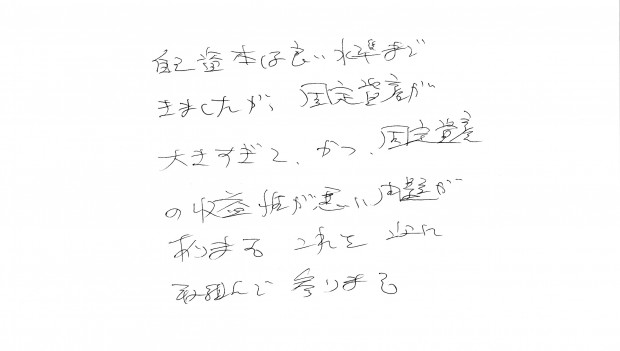 自己資本は良い水準まで
きましたが、固定資産が
大きすぎて、かつ、固定資産
の収益性が悪い問題が
あります これを
取組んで参ります